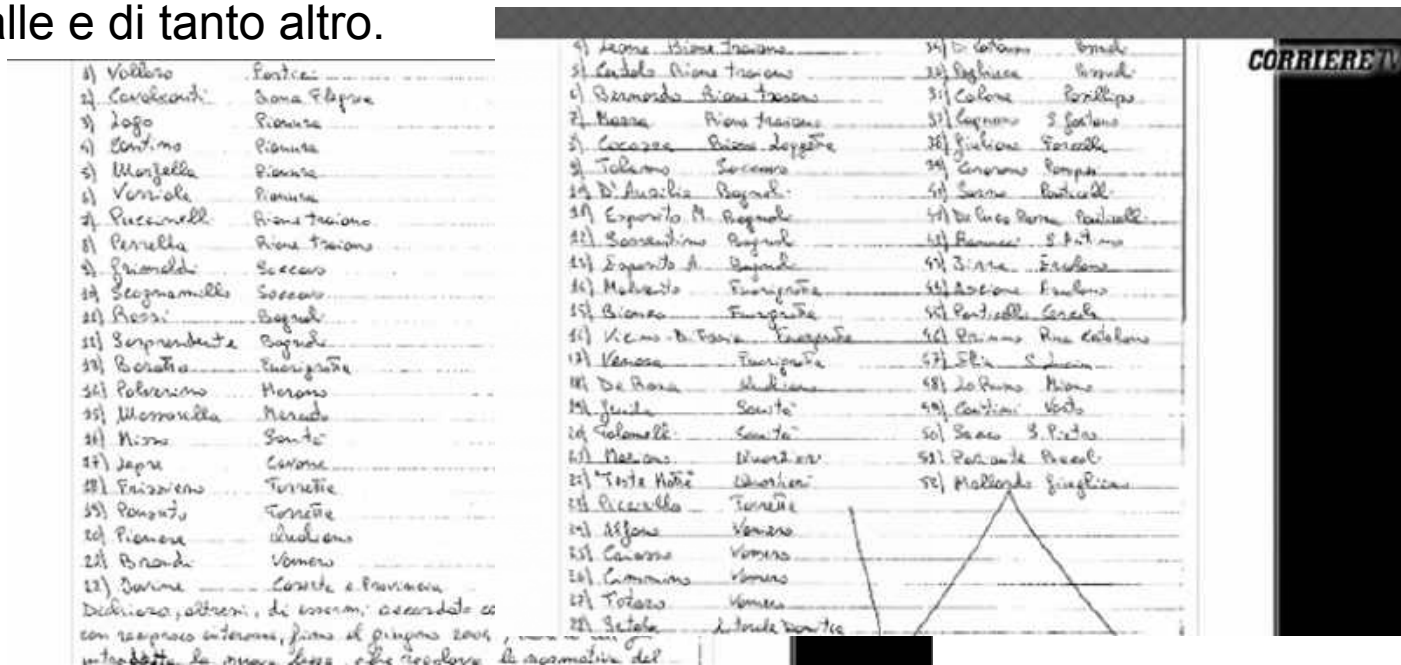 alle e di tanto altro.
CORRIERE TV
1) Vollaro Portici
2) Cavalcanti Zona Flegrea
3) Lago Pianura
4) Contino Pianura
5) Marfella Pianura
6) Varriale Pianura
7) Puccinelli Rione traiano
8) Perrella Rione traiano
9) Grimaldi Soccavo
10) Scognamillo Soccavo
11) Rossi Bagnoli
12) Sorprendente Bagnoli
13) Baratto Fuorigrotta
14) Polverino Merano
15) Mazzarella Mercato
16) Misso Sanità
17) Lepre Cavone
18) Frizziero Torretta
19) Ponzuto Torretta
20) Pianese Qualiano
21) Brandi Vomero
22) Caserta e Provincia
Dichiaro, altresì, di essermi accordato
con reciproco interesse, fino al giugno
la nuova legge che regolava la normativa del
4) Leone Rione Traiano
5) Cardolo Rione traiano
6) Bernardo Rione traiano
7) Marra Rione traiano
8) Cocozza Rione Loggetta
9) Tolomo Soccavo
10) D'Ausilio Bagnoli
11) Esposito M. Bagnoli
12) Sorrentino Bagnoli
13) Esposito A. Bagnoli
14) Malvito Fuorigrotta
15) Bianco Fuorigrotta
16) Vicino-Di Fuorigrotta
17) Venosa Fuorigrotta
18) De Rosa Qualiano
19) Guida Sanità
20) Tolomelli Sanità
21) Mariano Quartieri
22) "Teste Matte" Quartieri
23) Piccirillo Torretta
24) Alfano Vomero
25) Caiazzo Vomero
26) Cimmino Vomero
27) Totaro Vomero
28) Setola Litorale Domitio
36) Calone Posillipo
37) Cognano S. Gaetano
38) Giuliano Forcella
39) Cesarano Pompei
40) Sarno Ponticelli
41) De Luca Bossa Ponticelli
42) Ranucci S. Antimo
43) Birra Ercolano
44) Ascione Ercolano
45) Ponticelli Cercola
46) Prinno Rua Catalana
47) Elia S. Lucia
48) Lo Russo Miano
49) Contini Vasto
50) Sacco S. Pietro
51) Pariante Bacoli
52) Mallardo Giugliano